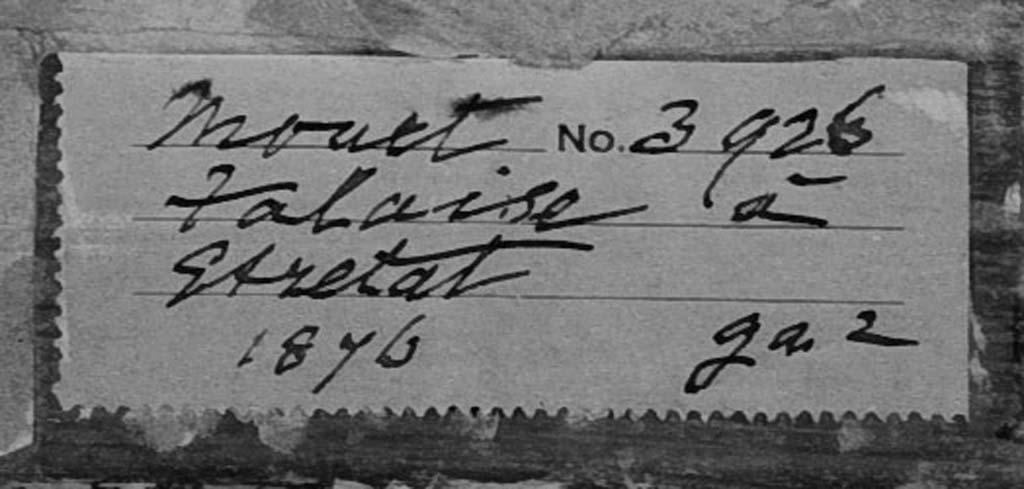 Monet No. 3926
Falaise à
Etretat
1876 ga. 2